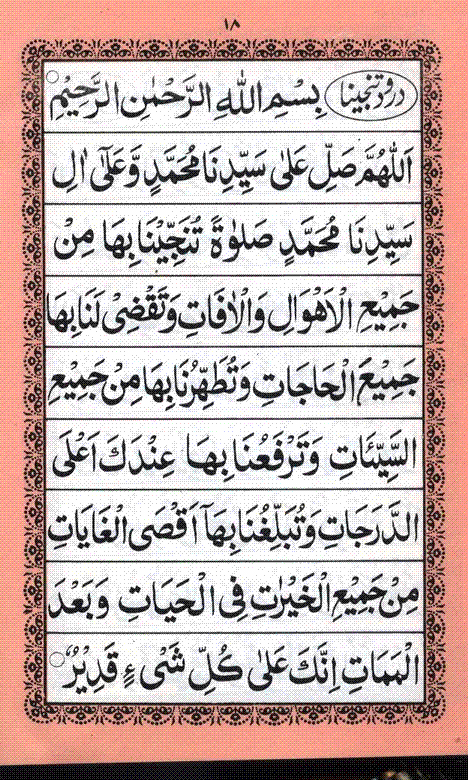 ١٨
درود تنجينا بِسْمِ اللهِ الرَّحْمٰنِ الرَّحِيْمِ
اَللّٰهُمَّ صَلِّ عَلٰى سَيِّدِنَا مُحَمَّدٍ وَّعَلٰٓى اٰلِ
سَيِّدِنَا مُحَمَّدٍ صَلٰوةً تُنَجِّيْنَا بِهَا مِنْ
جَمِيْعِ الْاَهْوَالِ وَالْاٰفَاتِ وَتَقْضِيْ لَنَا بِهَا
جَمِيْعَ الْحَاجَاتِ وَتُطَهِّرُنَا بِهَا مِنْ جَمِيْعِ
السَّيِّئَاتِ وَتَرْفَعُنَا بِهَا عِنْدَكَ اَعْلَى
الدَّرَجَاتِ وَتُبَلِّغُنَا بِهَآ اَقْصَى الْغَايَاتِ
مِنْ جَمِيْعِ الْخَيْرٰتِ فِى الْحَيَاتِ وَبَعْدَ
الْمَمَاتِ اِنَّكَ عَلٰى كُلِّ شَىْءٍ قَدِيْرٌ